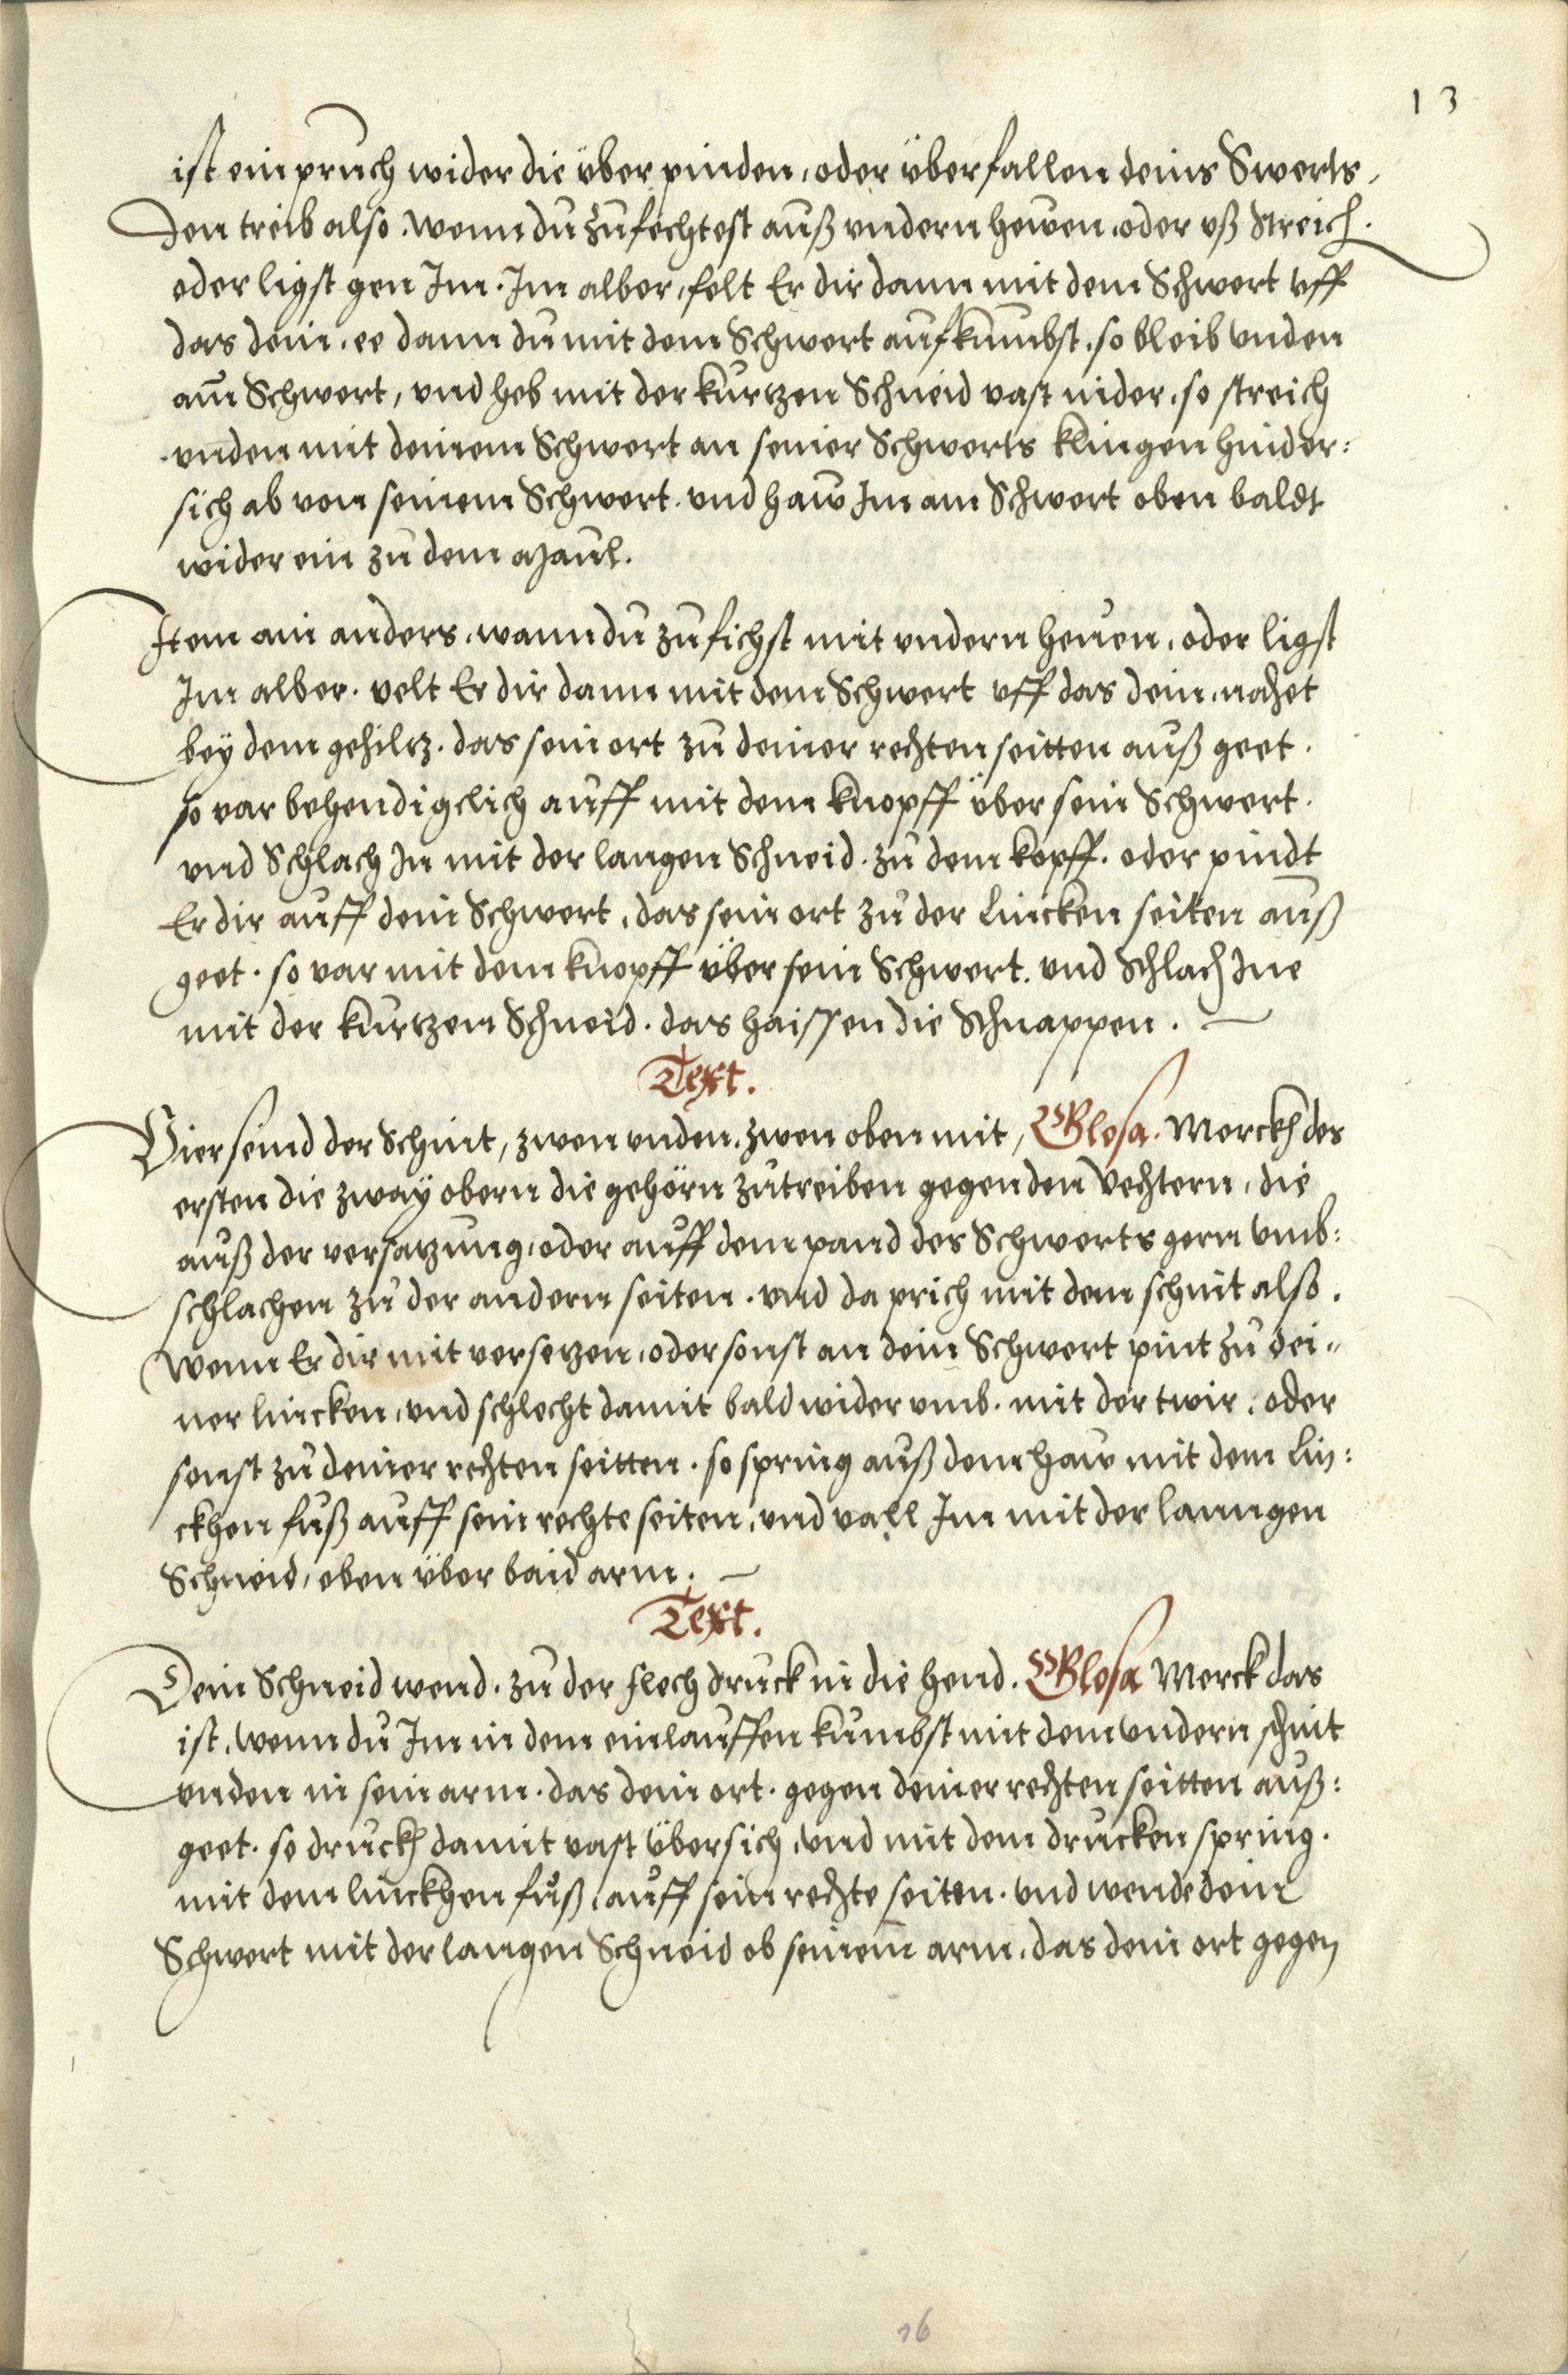 13
ist ein pruch wider die über pinden, oder überfallen deins Swerts,
Den treib also. wenn du zufechtest auß undern hewen, oder uß streich.
oder ligst gen Im. Im alber, felt Er dir dann mit dem Schwert uff
das dein, ee dann du mit dem Schwert aufkumbst, so bleib unden
am Schwert, und heb mit der kurtzen Schneid vast nider, so streich
unden mit deinem Schwert an seiner Schwerts klingen hinder:
sich ab von seinem Schwert. und haw Im am Schwert oben baldt
wider ein zu dem Maul.
Item ain anders, wann du zufichst mit undern heuen, oder ligst
Im alber. velt Er dir dann mit dem Schwert uff das dein, nachet
bey dem gehiltz. das sein ort zu deiner rechten seitten auß geet.
so var behendigclich auff mit dem knopff über sein Schwert.
und Schlach In mit der langen Schneid. zu dem kopff. oder pindt
Er dir auff dein Schwert, das sein ort zu der Lincken seiten auß
geet. so var mit dem knopff über sein Schwert. und Schlach Ine
mit der kurtzen Schneid. das haissen die Schnappen.
Text.
Vier seind der Schnit, zwen unden, zwen oben mit, Glosa. Merckh des
ersten die zway obern die gehörn zutreiben gegen den Vechtern, die
auß der versatzung, oder auff dem pand des Schwerts gern umb:
schlachen zu der andern seiten. und da prich mit dem schnit also.
Wenn Er dir mit versetzen, oder sonst an dein Schwert pint zu dei:
ner lincken, und schlecht damit bald wider umb. mit der twir, oder
sonst zu deiner rechten seitten. so spring auß dem haw mit dem Lin:
ckhen fuß auff sein rechte seiten, und vall Im mit der lanngen
Schneid, oben über baid arm.
Text.
Dein Schneid wend. zu der flech druck in die hend. Glosa Merck das
ist, wenn du Im in dem einlauffen kumbst mit dem undern schnit
unden in sein arm. das dein ort. gegen deiner rechten seitten auß:
geet. so druckh damit vast übersich, und mit dem drucken spring.
mit dem linckhen fuß, auff sein rechte seiten. und wende dein
Schwert mit der langen Schneid ob seinem arm, das dein ort gegen
16